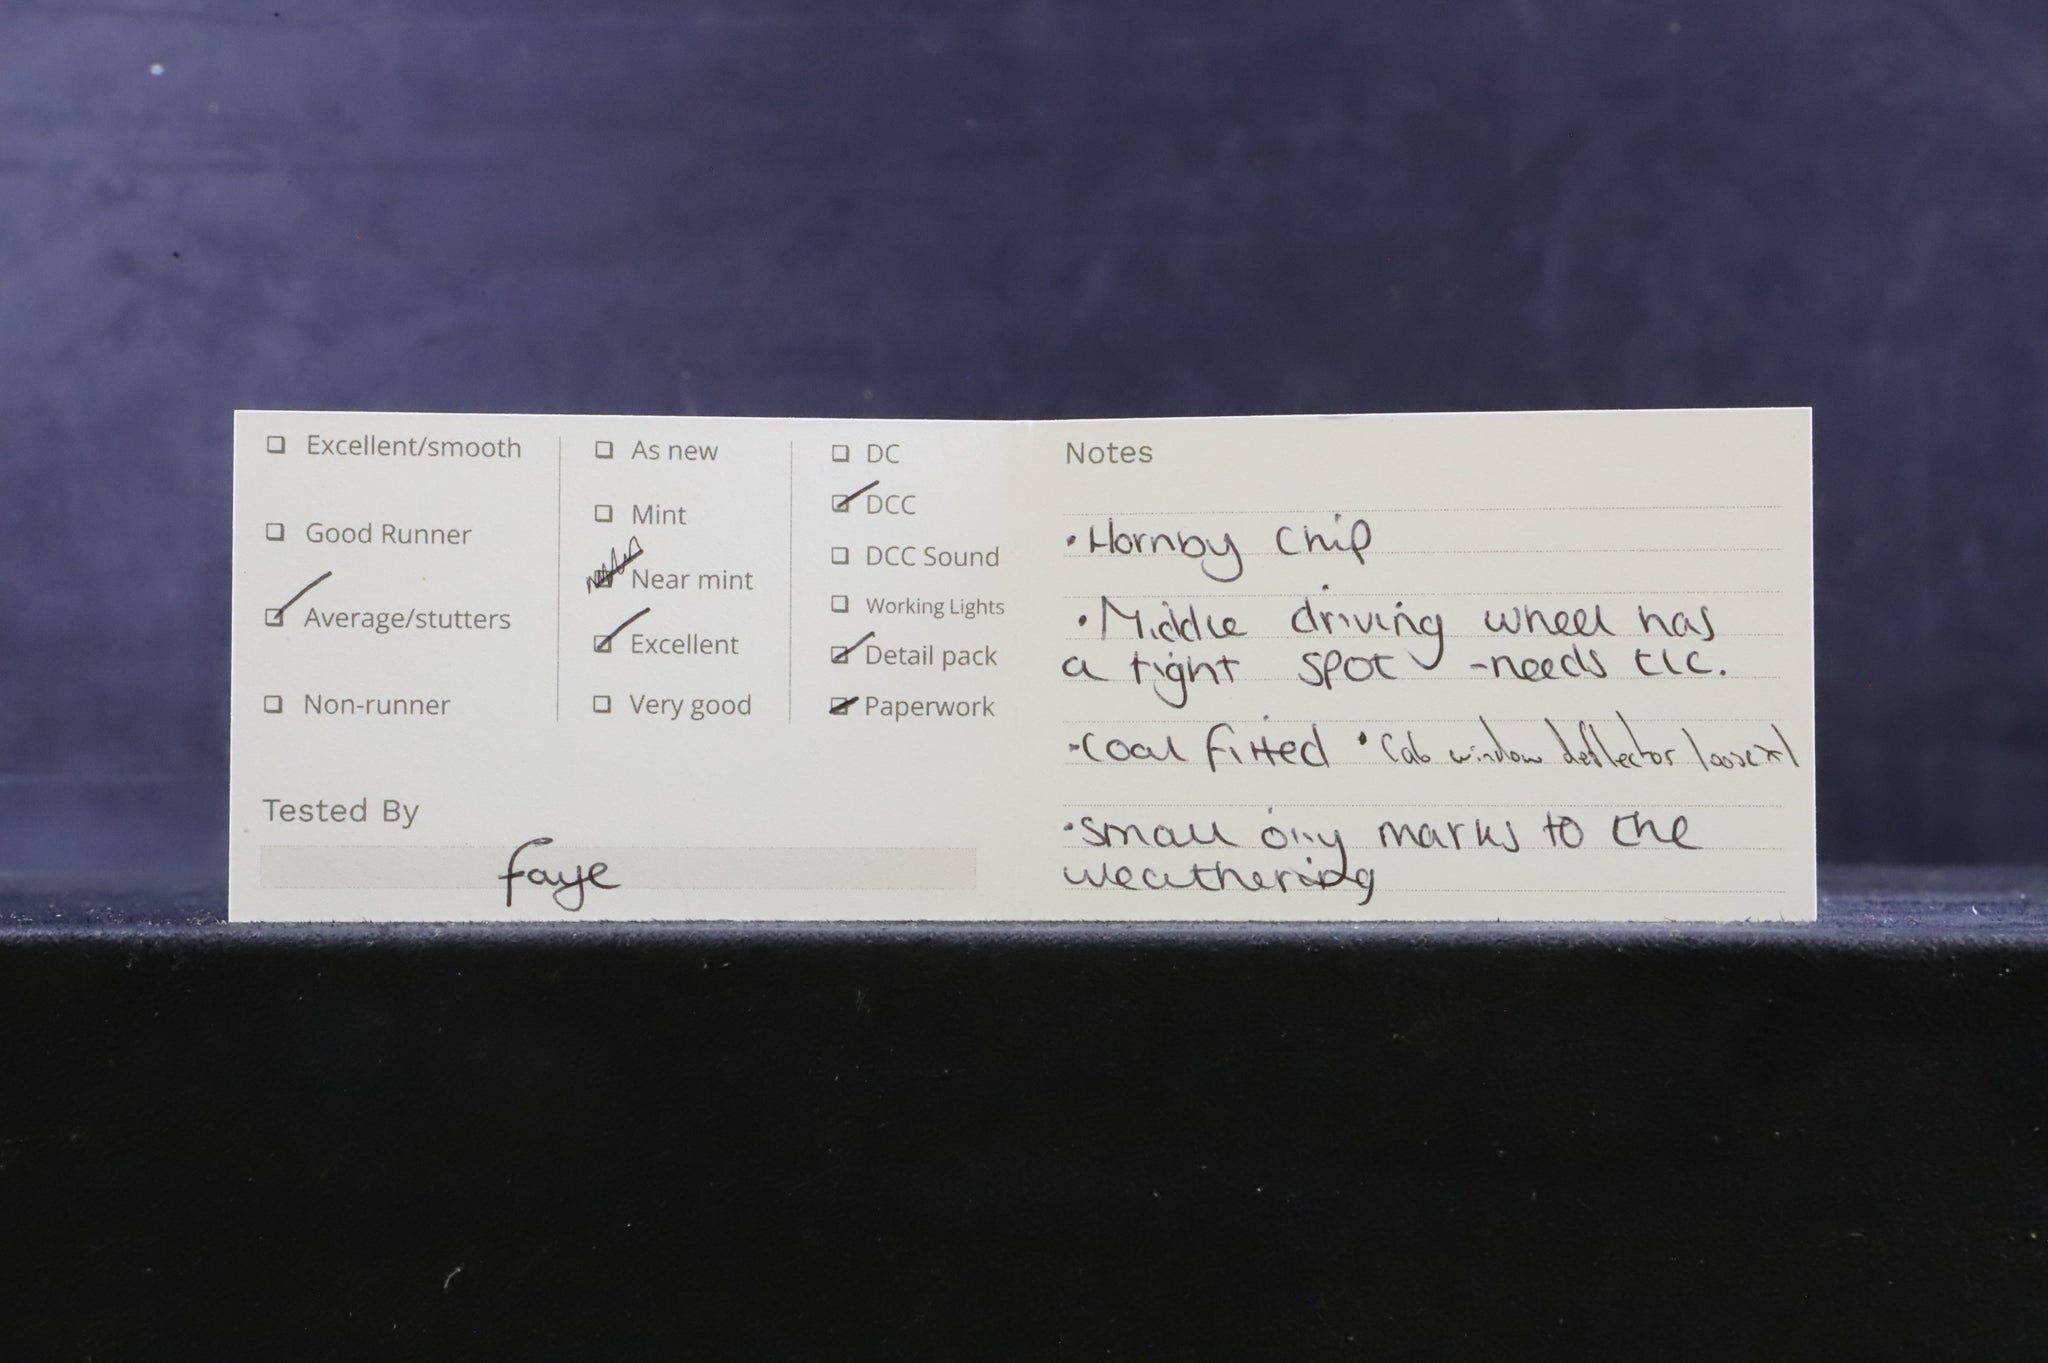 Excellent/smooth
Good Runner
Average/stutters
Non-runner
As new
Mint
Near mint
Excellent
Very good
DC
DCC
DCC Sound
Working Lights
Detail pack
Paperwork
Tested By
faye
Notes
• Hornby Chip
• Middle driving wheel has
a tight spot - needs tlc.
• Coal fitted • Cab window deflector loose x1
• small oily marks to the
weathering